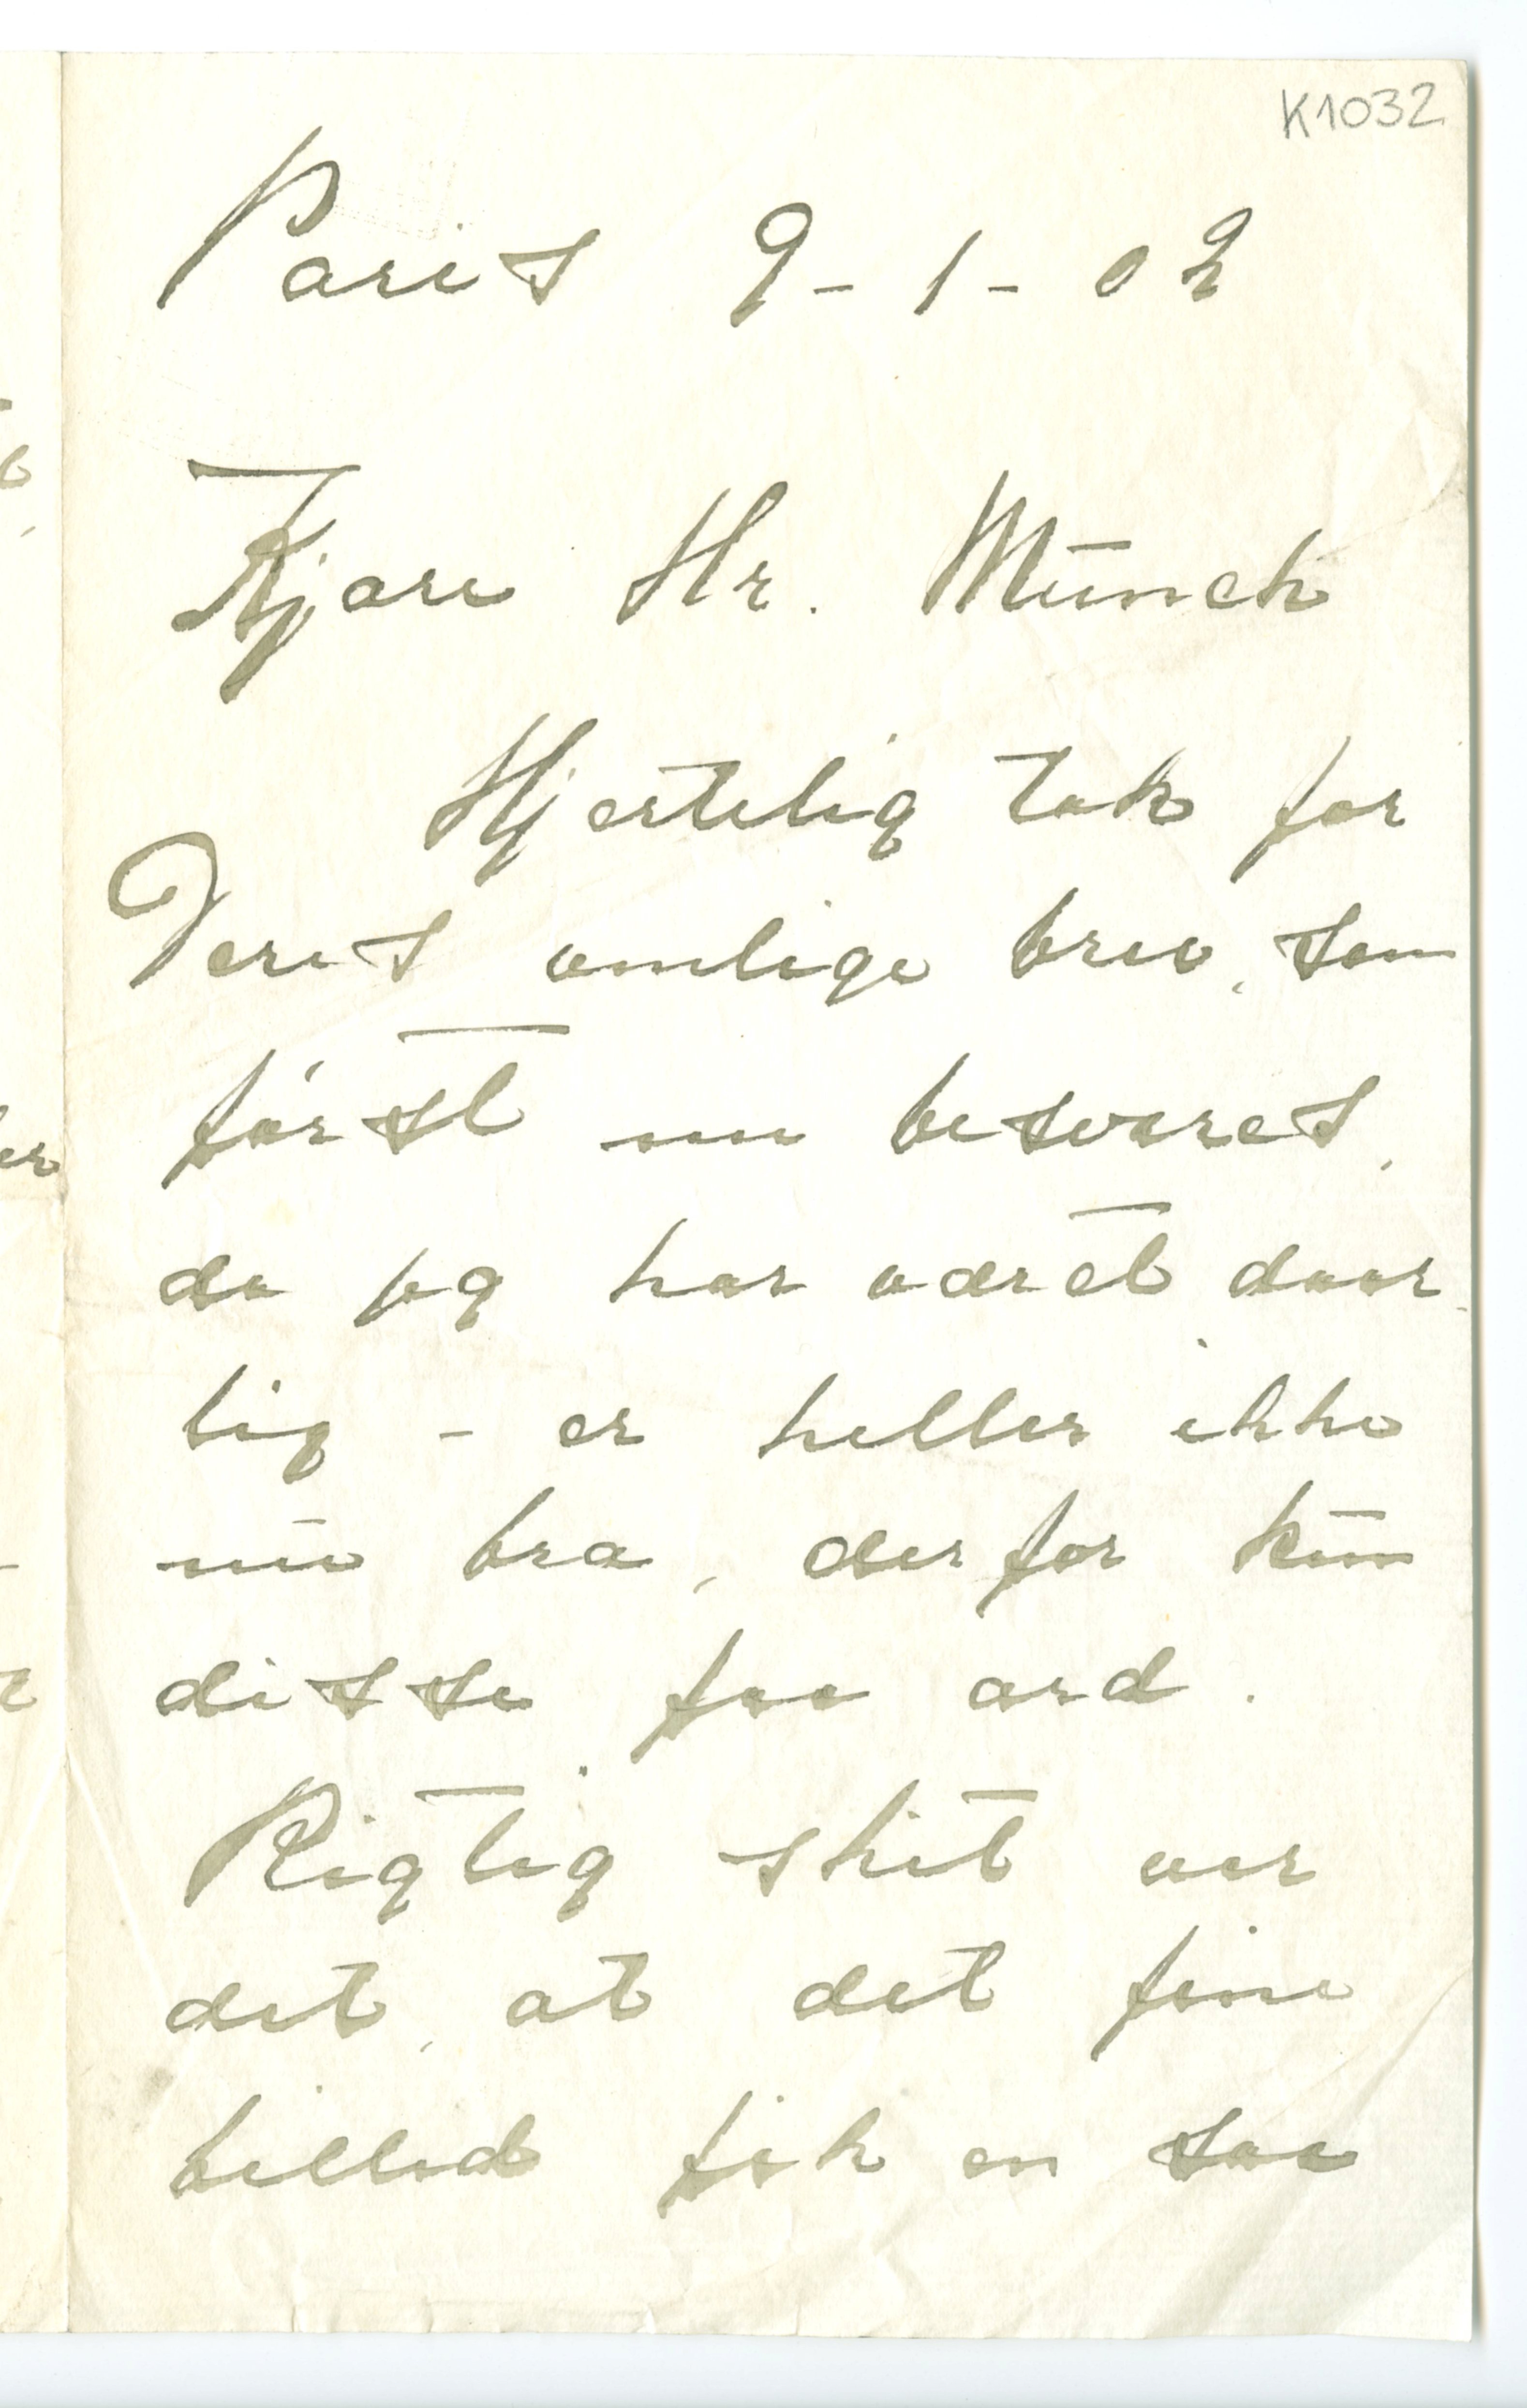 K1032
Paris 9-1-02
Kjære Hr. Munch
Hjertelig tak for
Deres venlige brev, som
først nu besvares,
da jeg har været daar-
lig - er heller ikke
nu bra, derfor kun
disse faa ord.
Rigtig skit var
det, at det fine
billed fik en saa